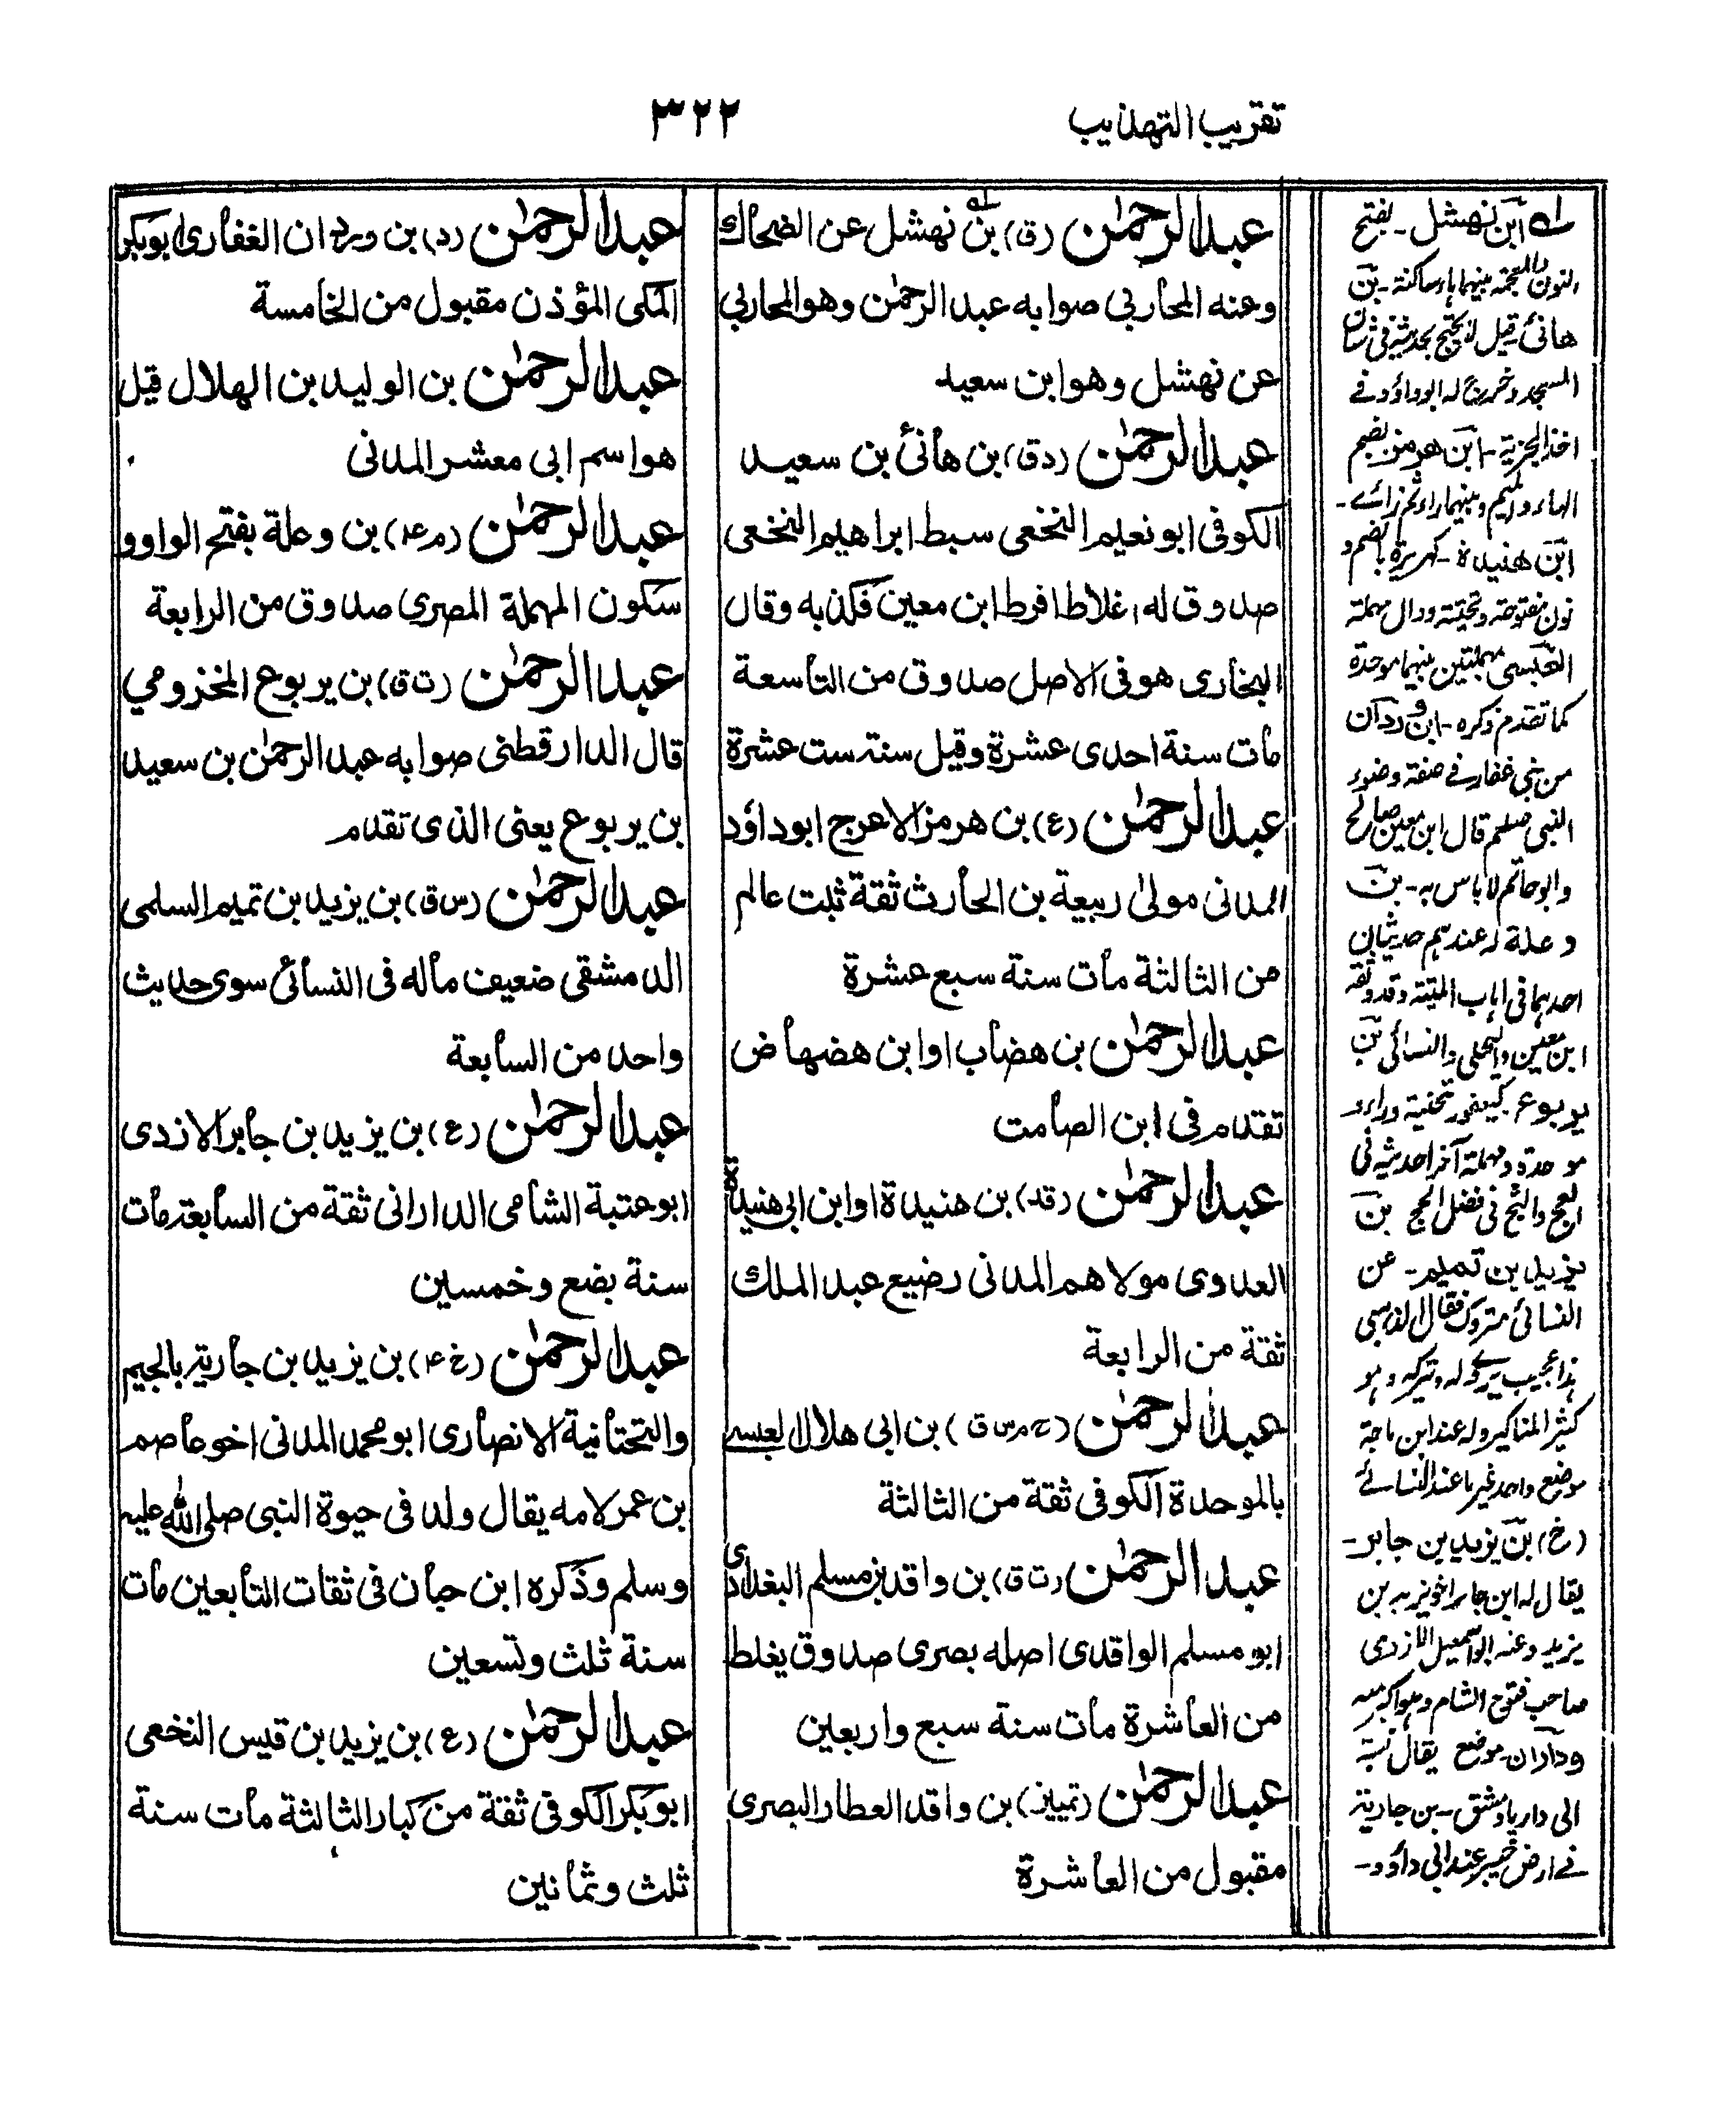 تقريب التهذيب
٣٢٢
عبد الرحمٰن (ق) بن نهشل عن الضحاك
وعنه المحاربي صوابه عبد الرحمٰن وهو المحاربي
عن نهشل وهو ابن سعيد
عبد الرحمٰن (د ق) بن هانئ بن سعيد
الكوفى ابو نعيم النخعى سبط ابراهيم النخعى
صدوق له اغلاط افرط ابن معين فكذبه وقال
البخارى هو فى الاصل صدوق من التاسعة
مات سنة احدى عشرة وقيل سنة ست عشرة
عبد الرحمٰن (ع) بن هرمز الاعرج ابو داؤد
المدنى مولى ربيعة بن الحارث ثقة ثبت عالم
من الثالثة مات سنة سبع عشرة
عبد الرحمٰن بن هضاب او ابن هضهاض
تقدم فى ابن الصامت
عبد الرحمٰن (قد) بن هنيدة او ابن ابى هنيدة
العدوى مولاهم المدنى رضيع عبد الملك
ثقة من الرابعة
عبد الرحمٰن (بخ م س ق) بن ابى هلال العبسى
بالموحدة الكوفى ثقة من الثالثة
عبد الرحمٰن (ت ق) بن واقد بن مسلم البغدادى
ابو مسلم الواقدى اصله بصرى صدوق يغلط
من العاشرة مات سنة سبع واربعين
عبد الرحمٰن (تمييز) بن واقد العطار البصرى
مقبول من العاشرة
عبد الرحمٰن (د) بن وردان الغفارى ابو بكر
المكى المؤذن مقبول من الخامسة
عبد الرحمٰن بن الوليد بن الهلال قيل
هو اسم ابى معشر المدنى
عبد الرحمٰن (م عه) بن وعلة بفتح الواو و
سكون المهملة المصرى صدوق من الرابعة
عبد الرحمٰن (ت ق) بن يربوع المخزومي
قال الدارقطنى صوابه عبد الرحمٰن بن سعيد
بن يربوع يعنى الذى تقدم
عبد الرحمٰن (س ق) بن يزيد بن تميم السلمى
الدمشقى ضعيف ماله فى النسائى سوى حديث
واحد من السابعة
عبد الرحمٰن (ع) بن يزيد بن جابر الازدى
ابو عتبة الشامى الدارانى ثقة من السابعة مات
سنة بضع وخمسين
عبد الرحمٰن (خ ۴) بن يزيد بن جارية بالجيم
والتحتانية الانصارى ابو محمد المدنى اخو عاصم
بن عمر لامه يقال ولد فى حيوة النبى صلى الله عليه
وسلم وذكره ابن حبان فى ثقات التابعين مات
سنة ثلث وتسعين
عبد الرحمٰن (ع) بن يزيد بن قيس النخعى
ابو بكر الكوفى ثقة من كبار الثالثة مات سنة
ثلث وثمانين
ابن نهشل - بفتح
النون والمعجمة بينهما هاء ساكنة - بن
هانئ - قيل
المسجد و له ابو داؤد فے
اخذ الجزية - ابن هرمز بضم
الهاء والميم وبينهما راء ثم زائے -
ابن هنيدة - كهريرة بالضم و
نون مفتوحة وتحتية ودال مهملة
العبسى مهملتين بينهما موحدة
كما تقدم ذكره - ابن وردان
من بنى غفار فے صفة وضوء
النبى صلعم قال ابن معين صالح
وابو حاتم لا باس به - بن
وعلة له عندهم حديثان
احدهما فى اهاب الميتة وقد وثقه
ابن معين والعجلى والنسائى بن
يربوع كيعفور تحتية وراء و
موحدة ومهملة آخرا حديثه فى
العج والثج فى فضل الحج بن
يزيد بن تميم - عن
النسائى متروك فقال الذهبى
هذا عجيب يروى له وتركه وهو
كثير المناكير وله عند ابن ماجة
موضع واحد غير ما عند النسائے
(خ) بن يزيد بن جابر -
يقال له ابن جابر اخو يزيد بن
يزيد وعنه ابو اسمعيل الازدى
صاحب فتوح الشام وهو اكبر منه
وداران موضع يقال نسبة
الى داريا دمشق - بن جارية
فے ارض خيبر عند ابى داؤد -